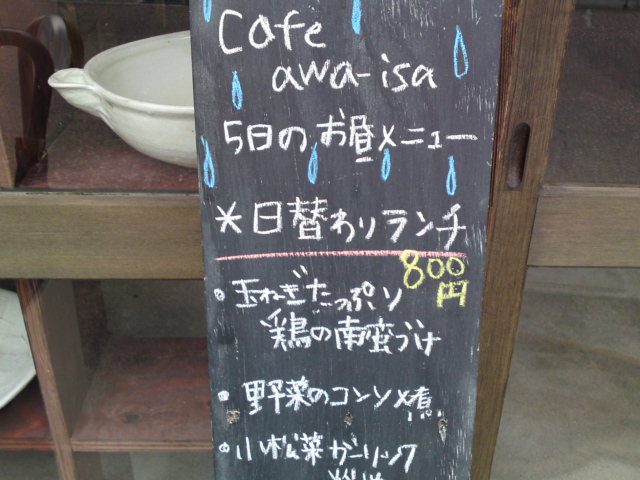 Cafe
awa-isa
5日のお昼メニュー
*日替わりランチ
800
円
・玉ねぎたっぷり
鶏の南蛮づけ
・野菜のコンソメ煮
・小松菜ガーリック